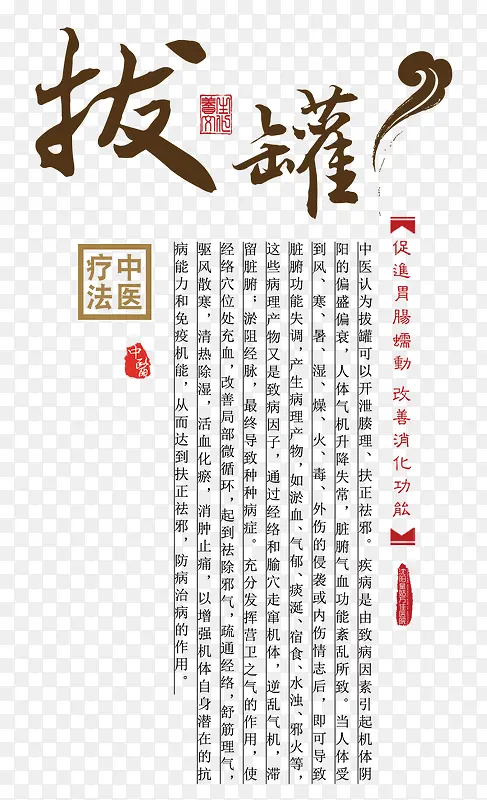 拔罐
養生文化
促進胃腸蠕動 改善消化功能
中医认为拔罐可以开泄腠理、扶正祛邪。疾病是由致病因素引起机体阴
阳的偏盛偏衰，人体气机升降失常，脏腑气血功能紊乱所致。当人体受
到风、寒、暑、湿、燥 火、毒、外伤的侵袭或内伤情志后，即可导致
脏腑功能失调，产生病理产物，如淤血、气郁、痰涎、宿食、水浊、邪火等，
这些病理产物又是致病因子，通过经络和腧穴走窜机体，逆乱气机，滞
留脏腑；淤阻经脉，最终导致种种病症。充分发挥营卫之气的作用，使
经络穴位处充血，改善局部微循环，起到祛除邪气，疏通经络，舒筋理气，
驱风散寒，清热除湿，活血化瘀，消肿止痛，以增强机体自身潜在的抗
病能力和免疫机能，从而达到扶正祛邪，防病治病的作用。
中医
疗法
中醫